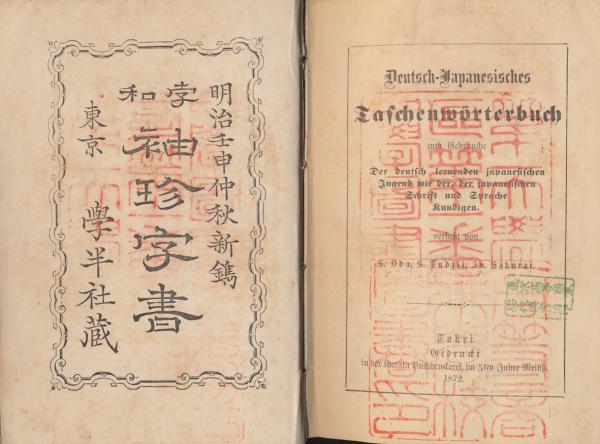 明治壬申仲秋新鐫
孛和
袖珍字書
東京 學半社藏
Deutsch-Japanesisches
Taschenwörterbuch
zum Gebrauche
Der deutsch lernenden japanesischen
Jugend wie der, der japanesischen
Schrift und Sprache
Kundigen.
verfaßt von
S. Oda, S. Fudzii, Sakurai.
Tokei
Gedruckt
in der Buchdruckerei, im 5ten Jahre Meidji.
1872.